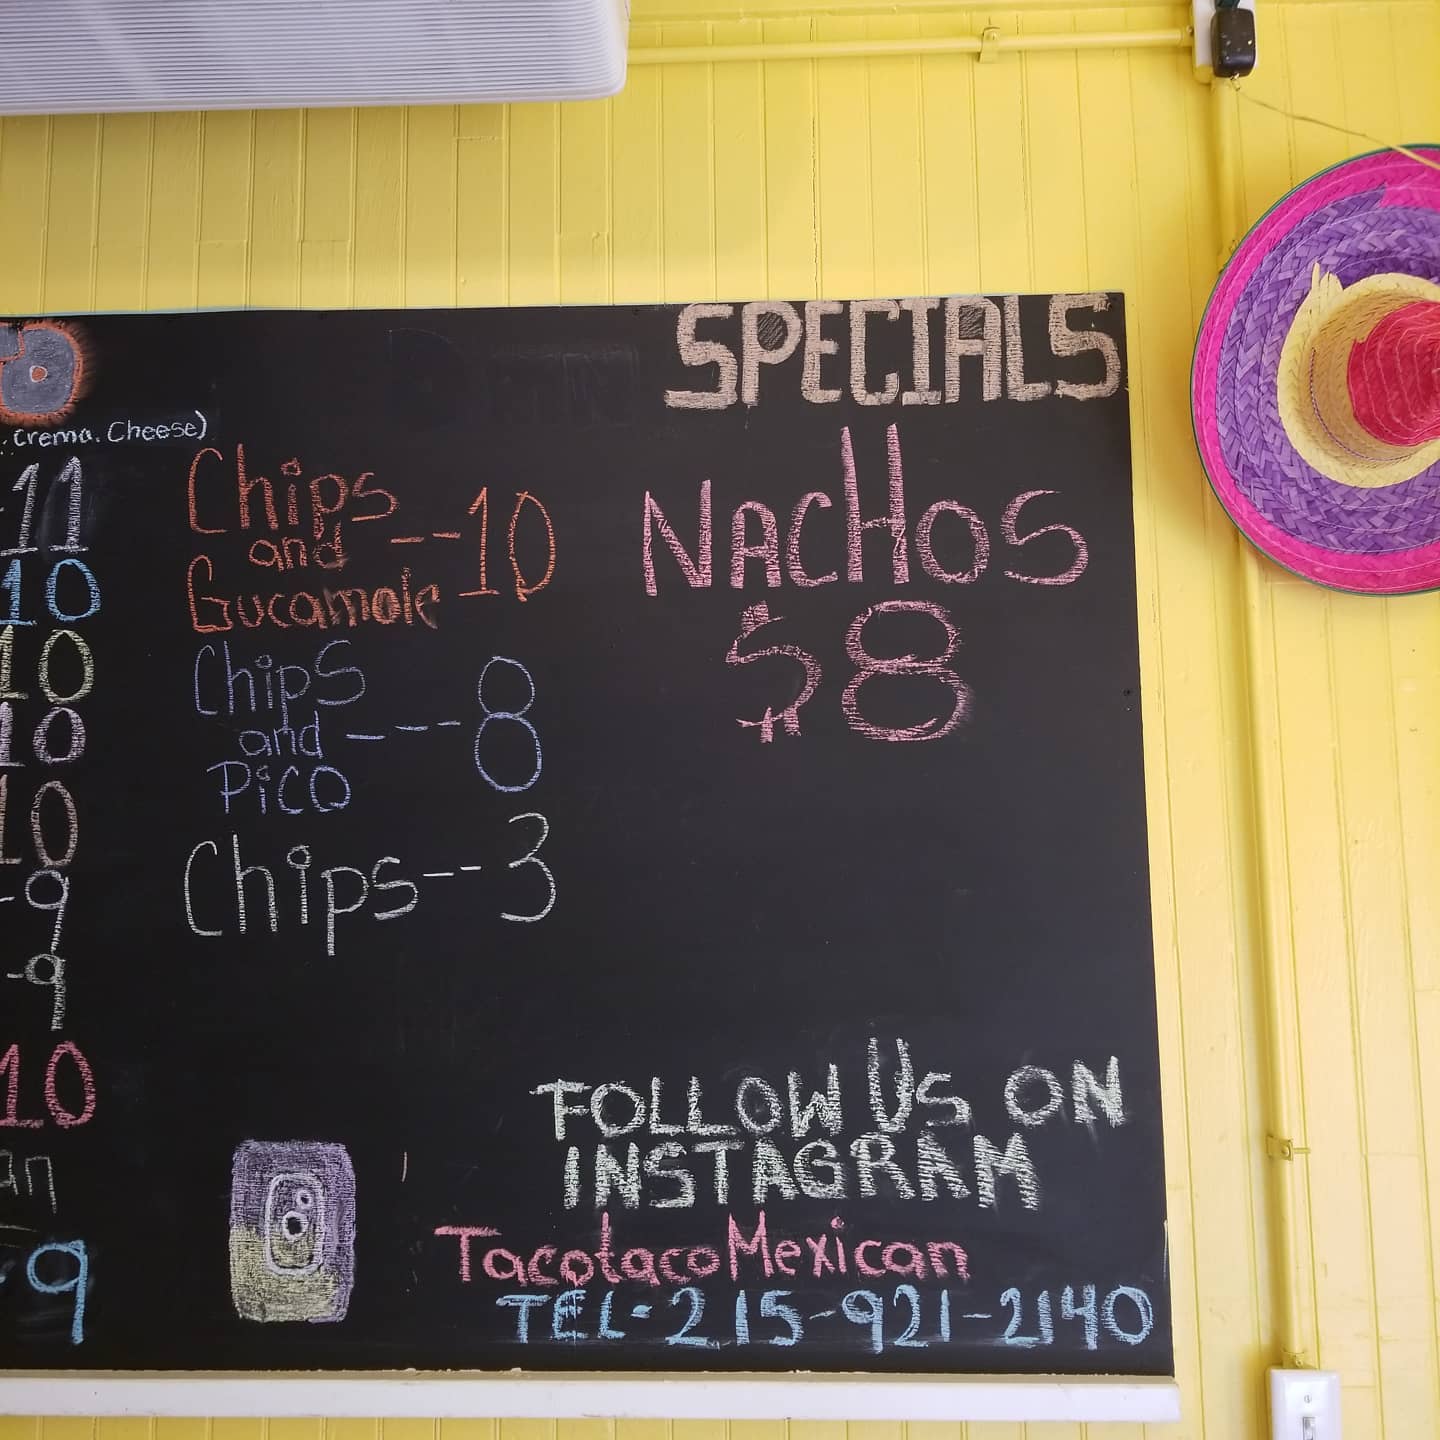 SPECIALS
. Crema. Cheese)
-11
10
10
10
10
-9
-9
10
an
-9
Chips
and ---10
Gucamole
Chips
and ---- 8
Pico
Chips--3
NACHOS
$8
FOLLOW US ON
INSTAGRAM
TacotacoMexican
TEL- 215-921-2140